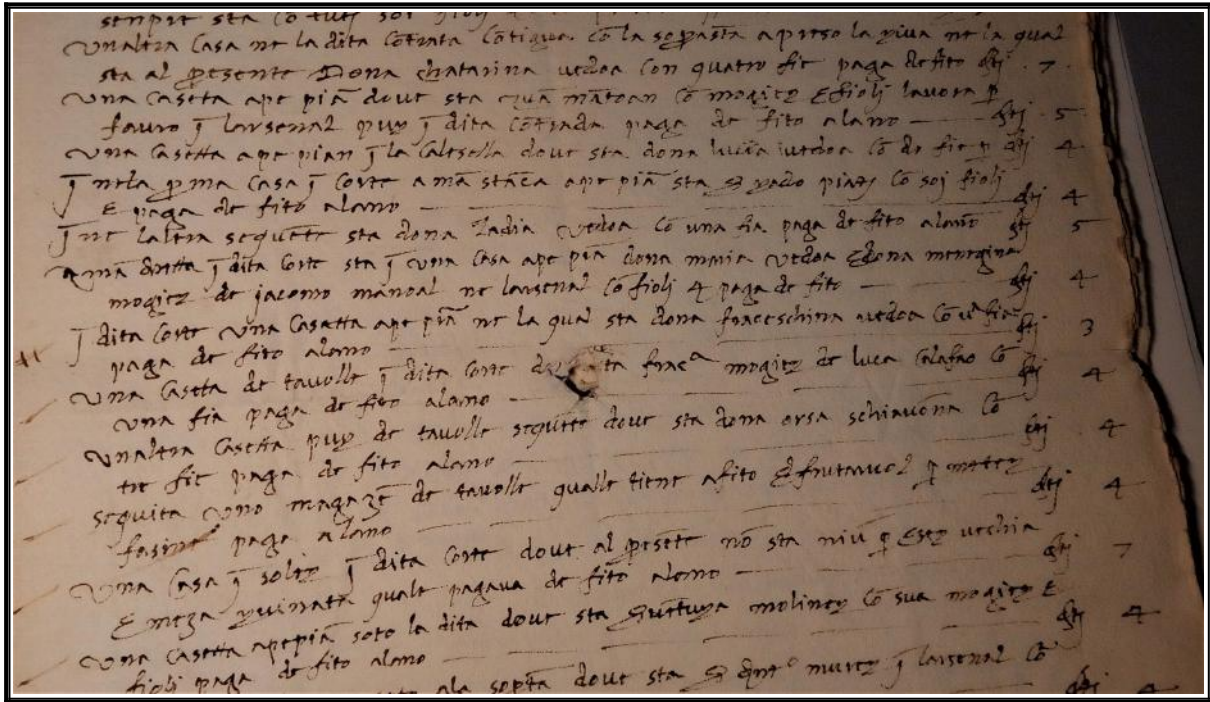 senpre sta co tuti soi fioli
unaltra casa ne la dita contrata contigua co la soprasta apreso la riva ne la qual
sta al presente Dona chatarina vedoa con quatro fie paga de fito dti 7
una casetta a pe pia dove sta mantoan co mogier e fioli lavora p
fauro j larsenal pur j dita contrada paga de fito alano dti 5
una casetta a pe pian j la calesella dove sta dona lucia vedoa co do fie dti 4
j nela prima casa j corte a ma stanca a pe pia sta co soi fioli
e paga de fito alano dti 4
j ne laltra sequete sta dona Zadia vedoa co una fia paga de fito alano dti 5
a ma dretta j dita corte sta j una casa a pe pia dona maria vedoa e dona menegina
mogier de jacomo manoal ne larsenal co fioli 4 paga de fito dti 4
j dita corte una casetta a pe pia ne la qual sta dona franceschina vedoa co fia
paga de fito alano dti 3
una casetta de tavolle j dita corte franca mogier de luca calafao co
una fia paga de fito alano dti 4
unaltra casetta pur de tavolle sequete dove sta dona orsa schiavona co
tre fie paga de fito alano dti 4
sequita uno magaze de tavolle qualle tiene afito frutaruol p meter
fasine paga alano dti 4
una casa j soler j dita corte dove al presete no sta niu p eser vechia
e meza ruinata quale pagava de fito alano dti 7
una casetta a pe pia soto la dita dove sta moliner co sua mogier e
fioli paga de fito alano dti 4
ala sopta dove sta murer j larsenal co
dti 4